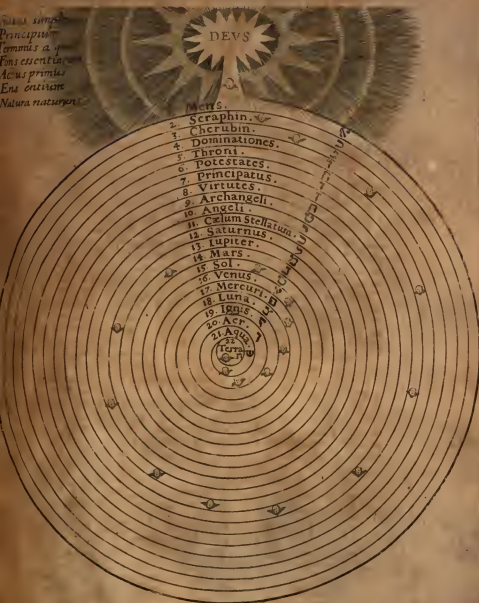 simplex
Principium
Terminus a quo
Fons essentiarum
Actus primus
Ens entium
Natura naturans
DEVS
Mens.
2. Seraphin.
3. Cherubin.
4. Dominationes.
5. Throni.
6. Potestates.
7. Principatus.
8. Virtutes.
9. Archangeli.
10. Angeli.
11. Cælum Stellatum.
12. Saturnus.
13. Iupiter.
14. Mars.
15. Sol.
16. Venus.
17. Mercuri.
18. Luna.
19. Ignis.
20. Aer.
21. Aqua.
22
Terra